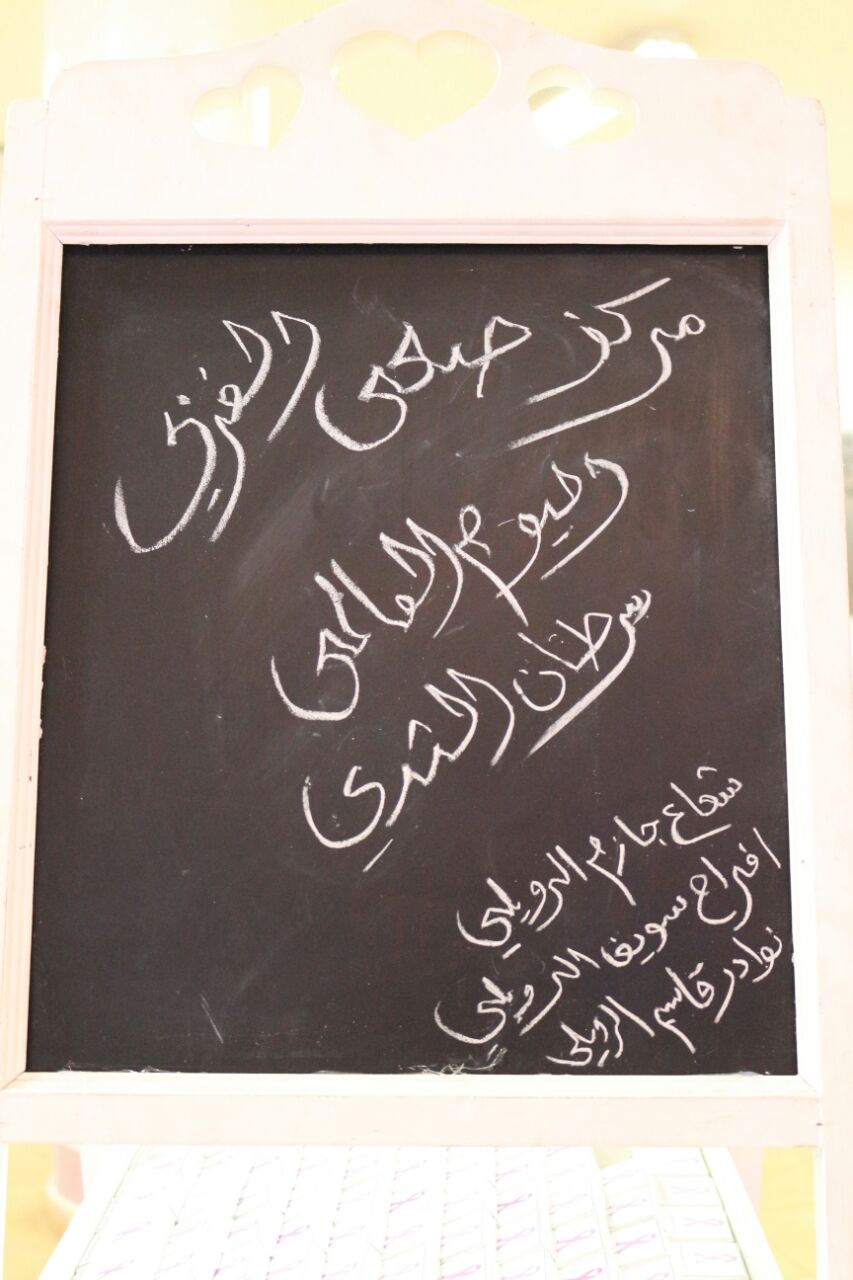 مركز صحي الغربي
اليوم العالمي
سرطان الثدي
شعاع جازم الرويلي
افراح سويف الرويلي
نوادر قاسم الرويلي